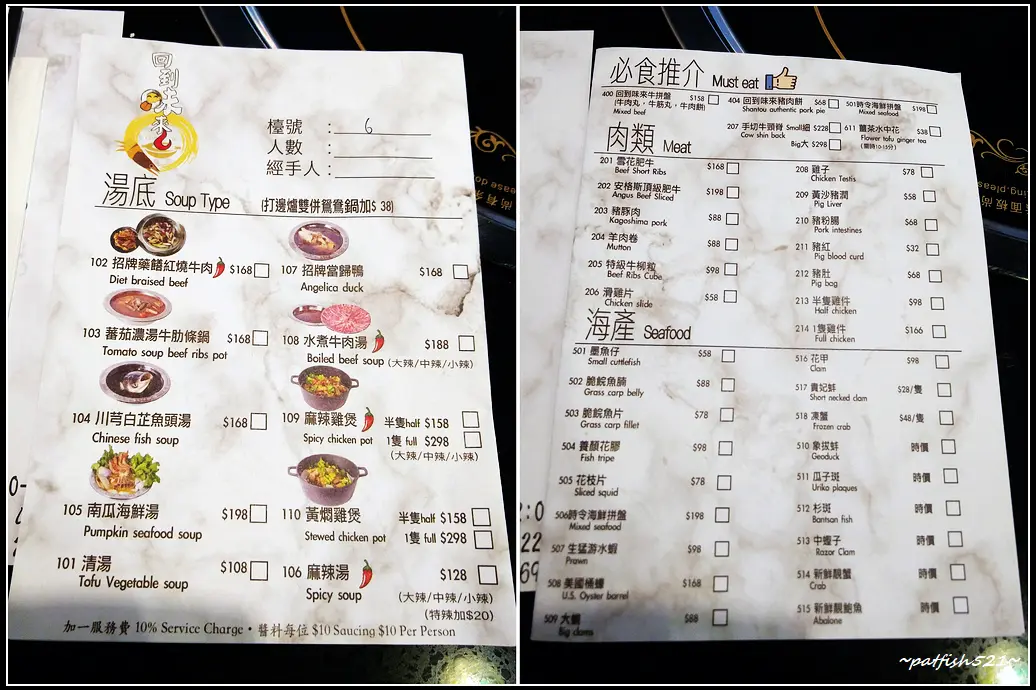 回到味來
檯號 : 6
人數 :
經手人 :
湯底 Soup Type (打邊爐雙併鴛鴦鍋加$ 38)
102 招牌藥饍紅燒牛肉 $168
Diet braised beef
107 招牌當歸鴨 $168
Angelica duck
103 蕃茄濃湯牛肋條鍋 $168
Tomato soup beef ribs pot
108 水煮牛肉湯 $188
Boiled beef soup (大辣/中辣/小辣)
104 川芎白芷魚頭湯 $168
Chinese fish soup
109 麻辣雞煲 半隻half $158
Spicy chicken pot 1隻 full $298
(大辣/中辣/小辣)
105 南瓜海鮮湯 $198
Pumpkin seafood soup
110 黃燜雞煲 半隻half $158
Stewed chicken pot 1隻 full $298
101 清湯 $108
Tofu Vegetable soup
106 麻辣湯 $128
Spicy soup (大辣/中辣/小辣)
(特辣加$20)
加一服務費 10% Service Charge • 醬料每位 $10 Saucing $10 Per Person
必食推介 Must eat
400 回到味來牛拼盤 $158
(牛肉丸，牛筋丸，牛肉餅)
Mixed beef
404 回到味來豬肉餅 $68
Shantou authentic pork pie
501時令海鮮拼盤 $198
Mixed seafood
207 手切牛頸脊 Small細 $228
Cow shin back Big大 $298
611 薑茶水中花 $38
Flower tofu ginger tea
(需時10-15分)
肉類 Meat
201 雪花肥牛 $168
Beef Short Ribs
202 安格斯頂級肥牛 $198
Angus Beef Sliced
203 豬豚肉 $88
Kagoshima pork
204 羊肉卷 $88
Mutton
205 特級牛柳粒 $98
Beef Ribs Cube
206 滑雞片 $58
Chicken slide
208 雞子 $78
Chicken Testis
209 黃沙豬潤 $58
Pig Liver
210 豬粉腸 $68
Pork intestines
211 豬紅 $32
Pig blood curd
212 豬肚 $68
Pig bag
213 半隻雞件 $98
Half chicken
214 1隻雞件 $166
Full chicken
海產 Seafood
501 墨魚仔 $58
Small cuttlefish
502 脆脘魚腩 $88
Grass carp belly
503 脆脘魚片 $78
Grass carp fillet
504 養顏花膠 $98
Fish tripe
505 花枝片 $78
Sliced squid
506時令海鮮拼盤 $198
Mixed seafood
507 生猛游水蝦 $98
Prawn
508 美國桶蠔 $168
U.S. Oyster barrel
509 大蜆 $88
Big clams
516 花甲 $98
Clam
517 貴妃蚌 $28/隻
Short necked clam
518 凍蟹 $48/隻
Frozen crab
510 象拔蚌 時價
Geoduck
511 瓜子斑 時價
Uriko plaques
512 杉斑 時價
Bantsan fish
513 中蟶子 時價
Razor Clam
514 新鮮靚蟹 時價
Crab
515 新鮮靚鮑魚 時價
Abalone
~patfish521~